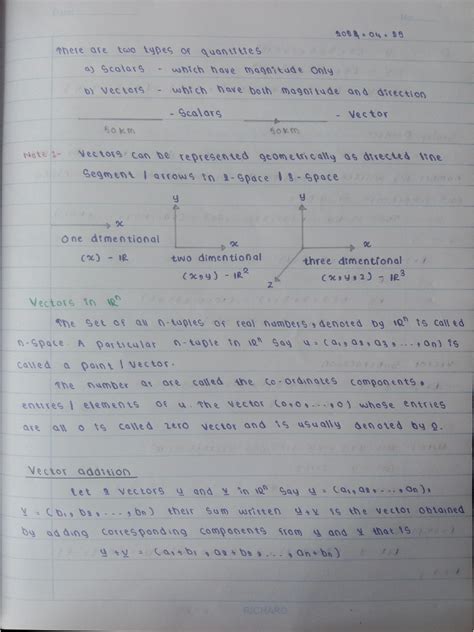 There are two types of quantities
a) Scalars - which have magnitude only
b) Vectors - which have both magnitude and direction
- Scalars - Vector
50km 50km
Note 1- Vectors can be represented geometrically as directed line
Segment / arrows in 2-Space / 3-Space
y y
x x x
One dimentional two dimentional three dimentional
(x) - IR (x,y) - IR² z (x,y,z) - IR³
Vectors in IRⁿ
The set of all n-tuples of real numbers, denoted by IRⁿ is called
n-space. A particular n-tuple in IRⁿ say u = (a₁, a₂, a₃, ..., an) is
called a point / vector.
The number ai are called the co-ordinates components,
entires / elements of u. The vector (0,0,...,0) whose entries
are all 0 is called zero vector and is usually denoted by 0.
Vector addition
Let 2 vectors u and v in IRⁿ say u = (a₁, a₂, ..., an),
v = (b₁, b₂, ..., bn) their sum written u+v is the vector obtained
by adding corresponding components from u and v that is
u+v = (a₁+b₁, a₂+b₂, ..., an+bn)
RICHARD